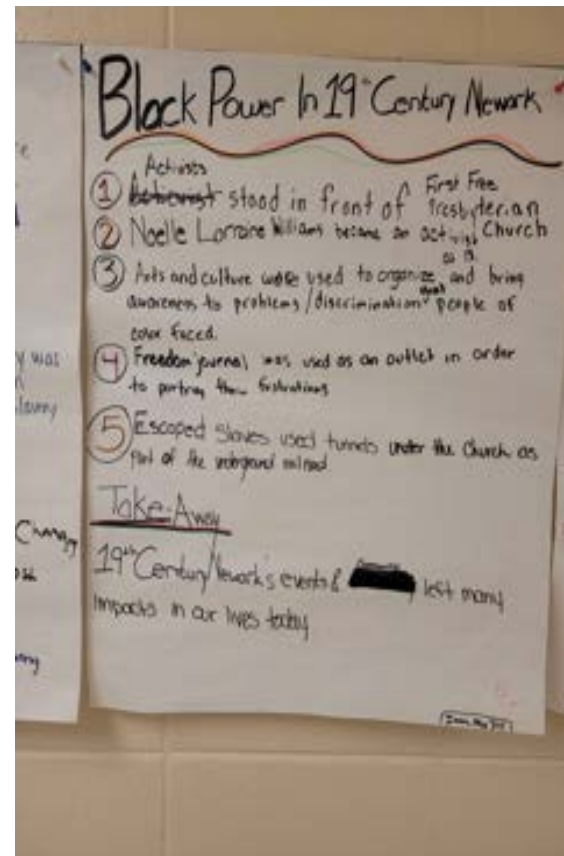 Black Power In 19th Century Newark
Activists
① stood in front of First Free
Presbyterian
② Noelle Lorraine Williams became an activist Church
③ Arts and culture were used to organize and bring
awareness to problems/discrimination that people of
color faced.
④ Freedom journal was used as an outlet in order
to portray their frustrations
⑤ Escaped Slaves used tunnels under the Church as
part of the underground railroad
Take-Away
19th Century Newark's events & left many
impacts in our lives today
y was